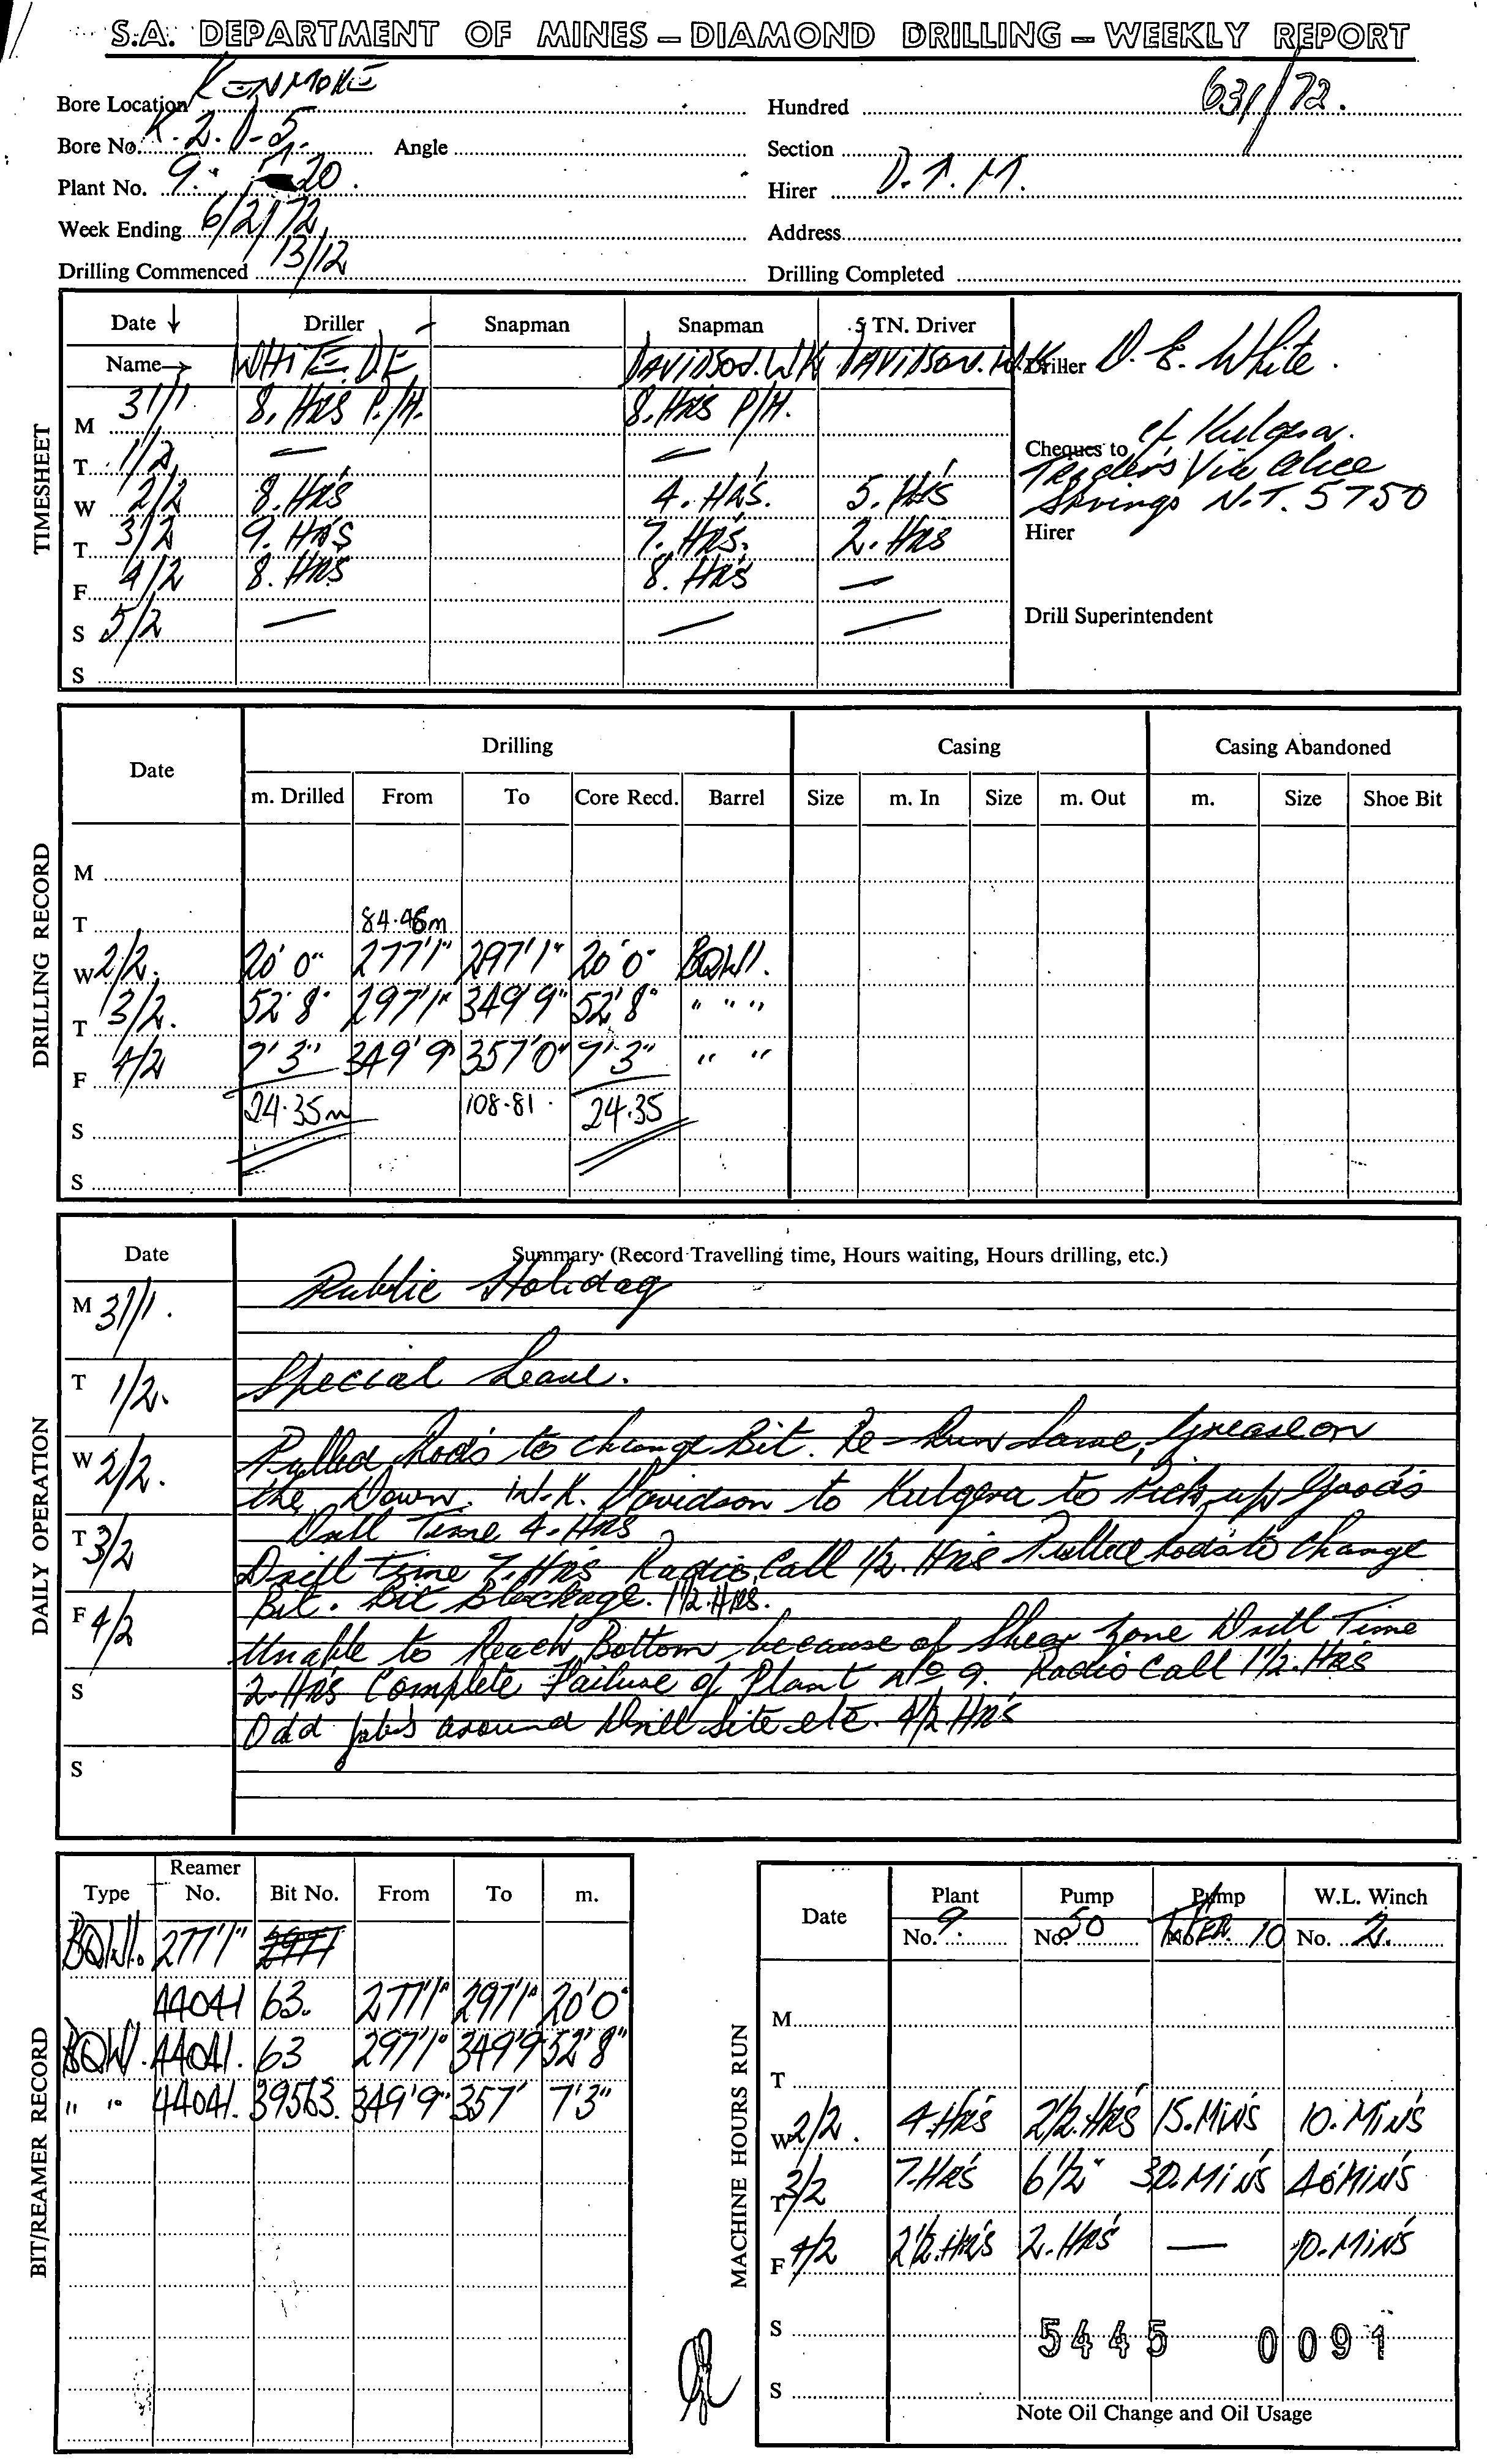 S.A. DEPARTMENT OF MINES — DIAMOND DRILLING — WEEKLY REPORT
Bore Location KENMORE Hundred 631/72.
Bore No. K.2. D-5. Angle Section
Plant No. 9. 20. Hirer D.T.M.
Week Ending 6/2/72 Address
Drilling Commenced 13/12 Drilling Completed
TIMESHEET
Date ↓ Driller Snapman Snapman 5 TN. Driver
Name→ WHITE. D.E DAVIDSON. WK DAVIDSON. W.K Driller D. E. White.
M 31/1 8. HRS P./H. 8. HRS P/H.
T 1/2 — — Cheques to c/ Kulgera.
Traders Via Alice
W 2/2 8. HR'S 4. HR'S. 5. HR'S Springs N.T. 5750
T 3/2 9. HR'S 7. HR'S. 2. HRS Hirer
F 4/2 8. HRS 8. HR'S —
S 5/2 — — — Drill Superintendent
S
DRILLING RECORD
Date Drilling Casing Casing Abandoned
m. Drilled From To Core Recd. Barrel Size m. In Size m. Out m. Size Shoe Bit
M
T 84.46m
W 2/2. 20' 0" 277'1" 297'1" 20' 0" BQWL.
T 3/2. 52' 8" 297'1" 349'9" 52'8" " " "
F 4/2 7' 3" 349'9" 357'0" 7'3" " "
S 24.35m 108.81. 24.35
S
DAILY OPERATION
Date Summary (Record Travelling time, Hours waiting, Hours drilling, etc.)
M 31/1. Public Holiday
T 1/2. Special Leave.
W 2/2. Pulled Rods to change Bit. Re-Run Same, Grease on
the Down. W.K. Davidson to Kulgera to Pick up Goods
Drill Time 4. HRS
T 3/2 Drill Time 7. HR'S Radio Call 1/2. HRS Pulled Rods to Change
Bit. Bit Blockage. 1 1/2. HRS.
F 4/2 Unable to Reach Bottom because of Shear Zone Drill Time
S 2. HR'S Complete Failure of Plant No 9. Radio Call 1 1/2. HRS
Odd jobs around Drill Site etc. 4 1/2 HR'S
S
BIT/REAMER RECORD
Type Reamer No. Bit No. From To m.
BQWL. 277'1" 2971
44041 63. 277'1" 297'1" 20'0"
BQW. 44041. 63 297'1" 349'9 52'8"
" " 44041. 39563. 349'9" 357' 7'3"
MACHINE HOURS RUN
Date Plant Pump Pump W.L. Winch
No. 9. No. 50 No. 10 No. 2.
M
T
W 2/2. 4. HR'S 2 1/2. HR'S 15. MIN'S 10. MIN'S
T 3/2 7. HR'S 6 1/2 " 30. MIN'S 40 MIN'S
F 4/2 2 1/2. HR'S 2. HR'S — 10. MIN'S
S 5445 0091
S
Note Oil Change and Oil Usage